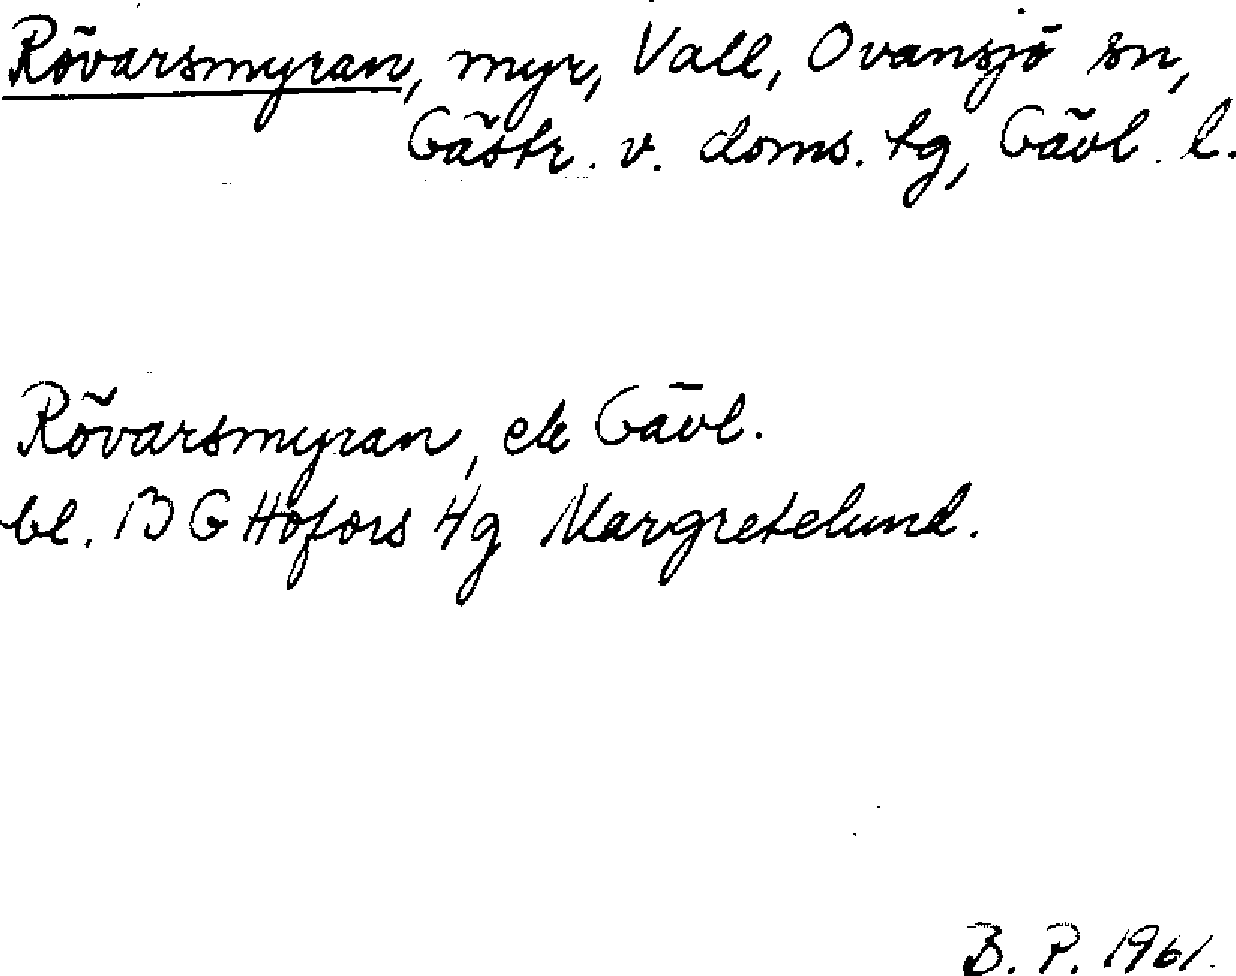 Rövarsmyran, myr, Vall, Ovansjö sn,
Gästr. v. doms. tg, Gävl. l.
Rövarsmyran, ek Gävl.
bl. BG Hofors 4g Margretelund.
B. P. 1961.